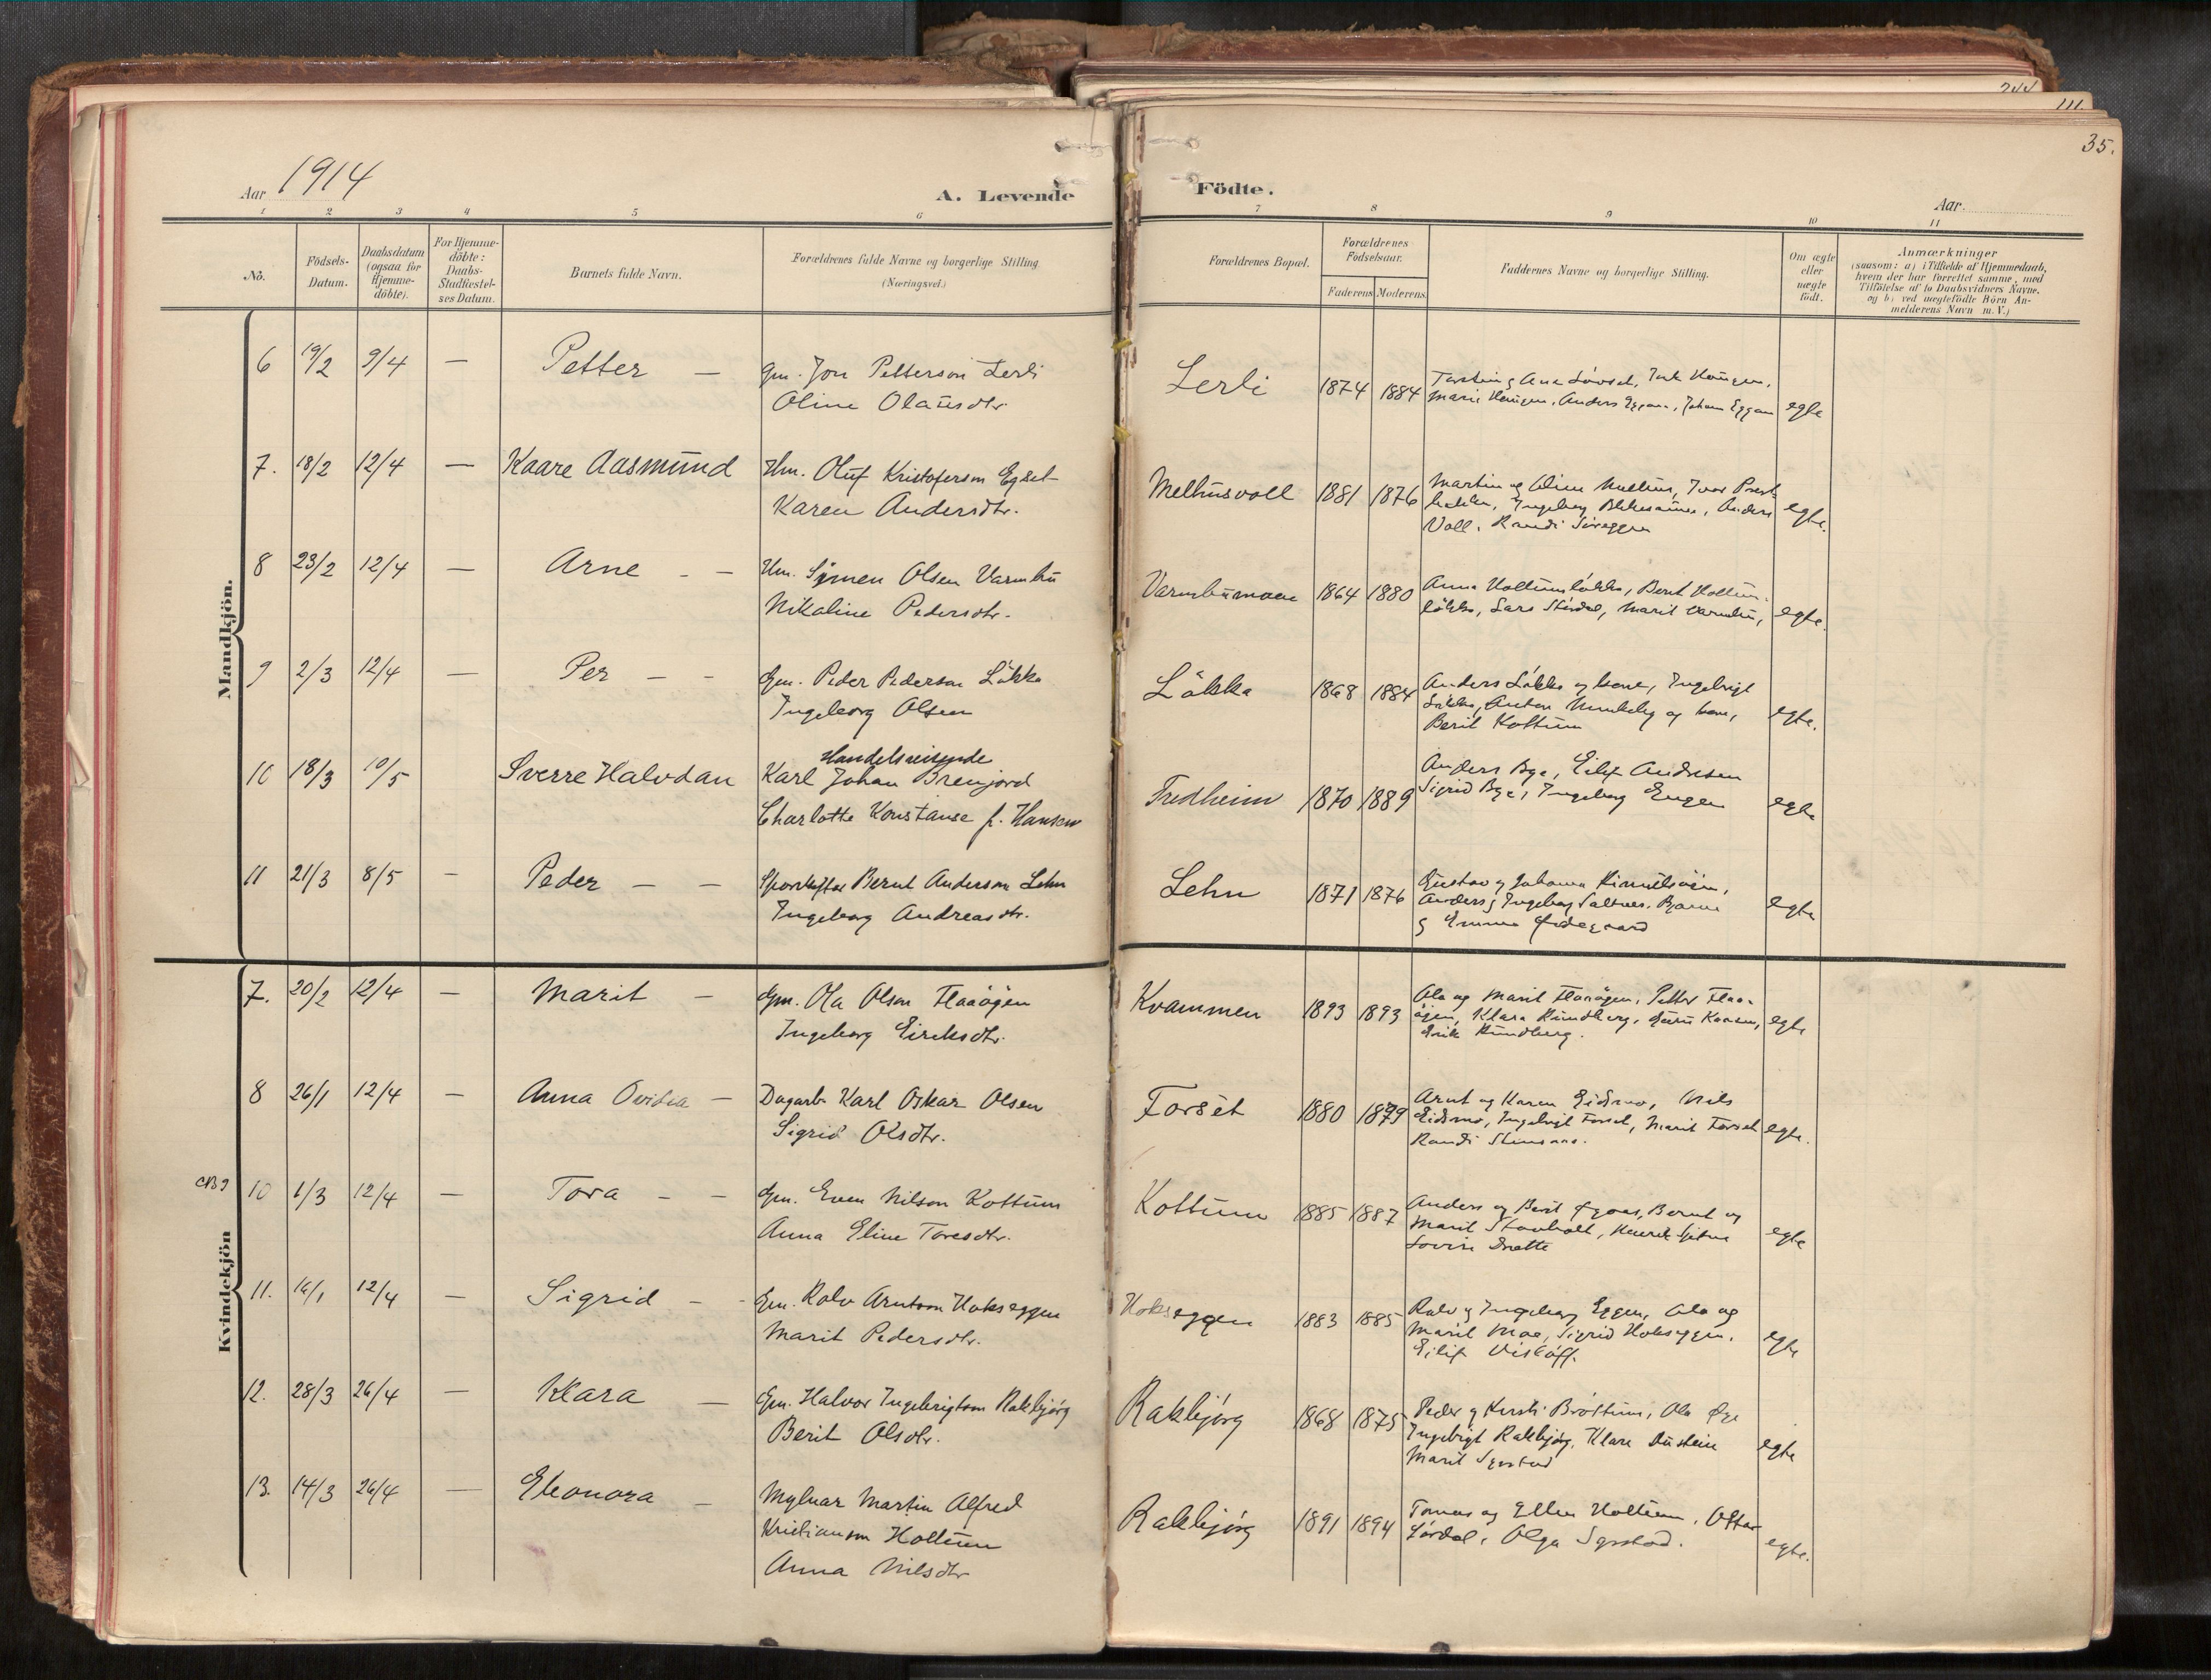 244
111.
35.
Aar 1914
A. Levende Födte.
Aar
1 2 3 4 5 6 7 8 9 10 11
No.
Födsels-
Datum.
Daabsdatum
(ogsaa for
Hjemme-
döbte).
For Hjemme-
döbte:
Daabs-
Stadfæstel-
ses Datum.
Barnets fulde Navn.
Forældrenes fulde Navne og borgerlige Stilling
(Næringsvei.)
Forældrenes Bopæl.
Forældrenes
Födselsaar.
Faderens Moderens
Faddernes Navne og borgerlige Stilling.
Om ægte
eller
uægte
födt.
Anmærkninger
(saasom: a) i Tilfælde af Hjemmedaab,
hvem der har forrettet samme, med
Tilföielse af to Daabsvidners Navne.
og b) ved uægtefödte Börn An-
melderens Navn m. V.)
Mandkjön.
6 19/2 9/4 — Petter — Gm. Jon Petterson Lerli
Oline Olausdtr.
Lerli 1874 1884
Marie Haugen, Anders Eggan, Johan Eggan egte
7. 18/2 12/4 — Kaare Aasmund Hm. Oluf Kristoferson Egset
Karen Andersdtr.
Melhusvoll 1881 1876 Martin og Oline Melhus, Ivar Prest-
bakken, Ingeborg, Anders egte.
Voll, Randi
8 23/2 12/4 — Arne - — Hm. Simen Olsen Varmbu
Nikaline Pedersdtr.
Varmbumoen 1864 1880 Anna Kottumsløkken, Berit Kottum-
løkken, Lars, Marit Varmbu, egte.
9 2/3 12/4 — Per — - Gm. Peder Pederson Løkka
Ingeborg Olsen
Løkka 1868 1884 Anders Løkka og kone, Ingebrigt
Løkka, Anton Munkeby og kone, egte.
Berit Kottum
10 18/3 10/5 Sverre Halvdan Handelsreisende
Karl Johan Brenjord
Charlotte Konstanse f. Hansen
Fredheim 1870 1889 Anders Bye, Eilif Andresen
Sigrid Bye, Ingeborg Engen egte
11 21/3 8/5 — Peder — — Sporskifter Bernt Anderson Lehn
Ingeborg Andreasdtr.
Lehn 1871 1876 Gustav og Johanna
Anders og Ingeborg Saltnes. Bjarne egte
og Emma Ødegaard
Kvindekjön
7. 20/2 12/4 — Marit — Gm. Ola Olson Flaaøgen
Ingeborg Eireksdtr.
Kvammen 1893 1893 Ola og Marit Flaaøgen, Petter Flaa-
øgen, Klara Rundberg, Kvam, egte
Erik Rundberg.
8 26/1 12/4 — Anna Ovidia — Dagarb. Karl Oskar Olsen
Sigrid Olsdtr.
Forset 1880 1879 Arnt og Karen Eidsmo, Nils
Eidsmo, Ingebrigt Forset, Marit Forset egte.
Randi Stensaas.
10 1/3 12/4 — Tora - — Gm. Even Nilson Kottum
Anna Eline Toresdtr.
Kottum 1885 1887 Anders og Berit Øyaas, Bernt og
Marit Skauholt, Henrik egte
Lovise
11. 16/1 12/4 — Sigrid — - Gm. Rolv Arntson Hokseggen
Marit Pedersdtr.
Hokseggen 1883 1885 Rolv og Ingeborg Eggen, Ola og
Marit Moe, Sigrid Hokseggen, egte
Eilif Visløff.
12. 28/3 26/4 — Klara — Gm. Halvor Ingebrigtson Rakbjørg
Berit Olsdtr.
Rakbjørg 1868 1875 Peder og Kirsti Brøttum, Ola Øye
Ingebrigt Rakbjørg, Klara egte
Marit
13. 14/3 26/4 — Eleonora — Mylnar Martin Alfred
Kristianson Hollum
Anna Nilsdtr
Rakbjørg 1891 1894 Tomas og Ellen Hollum,
Lørdal, Olga egte.